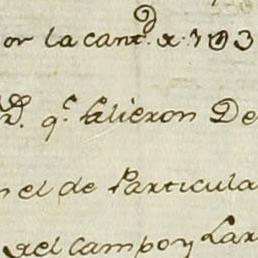 or la cant.d de 193
rd. q.e salieron De
n el de Particula
del campo y Lar